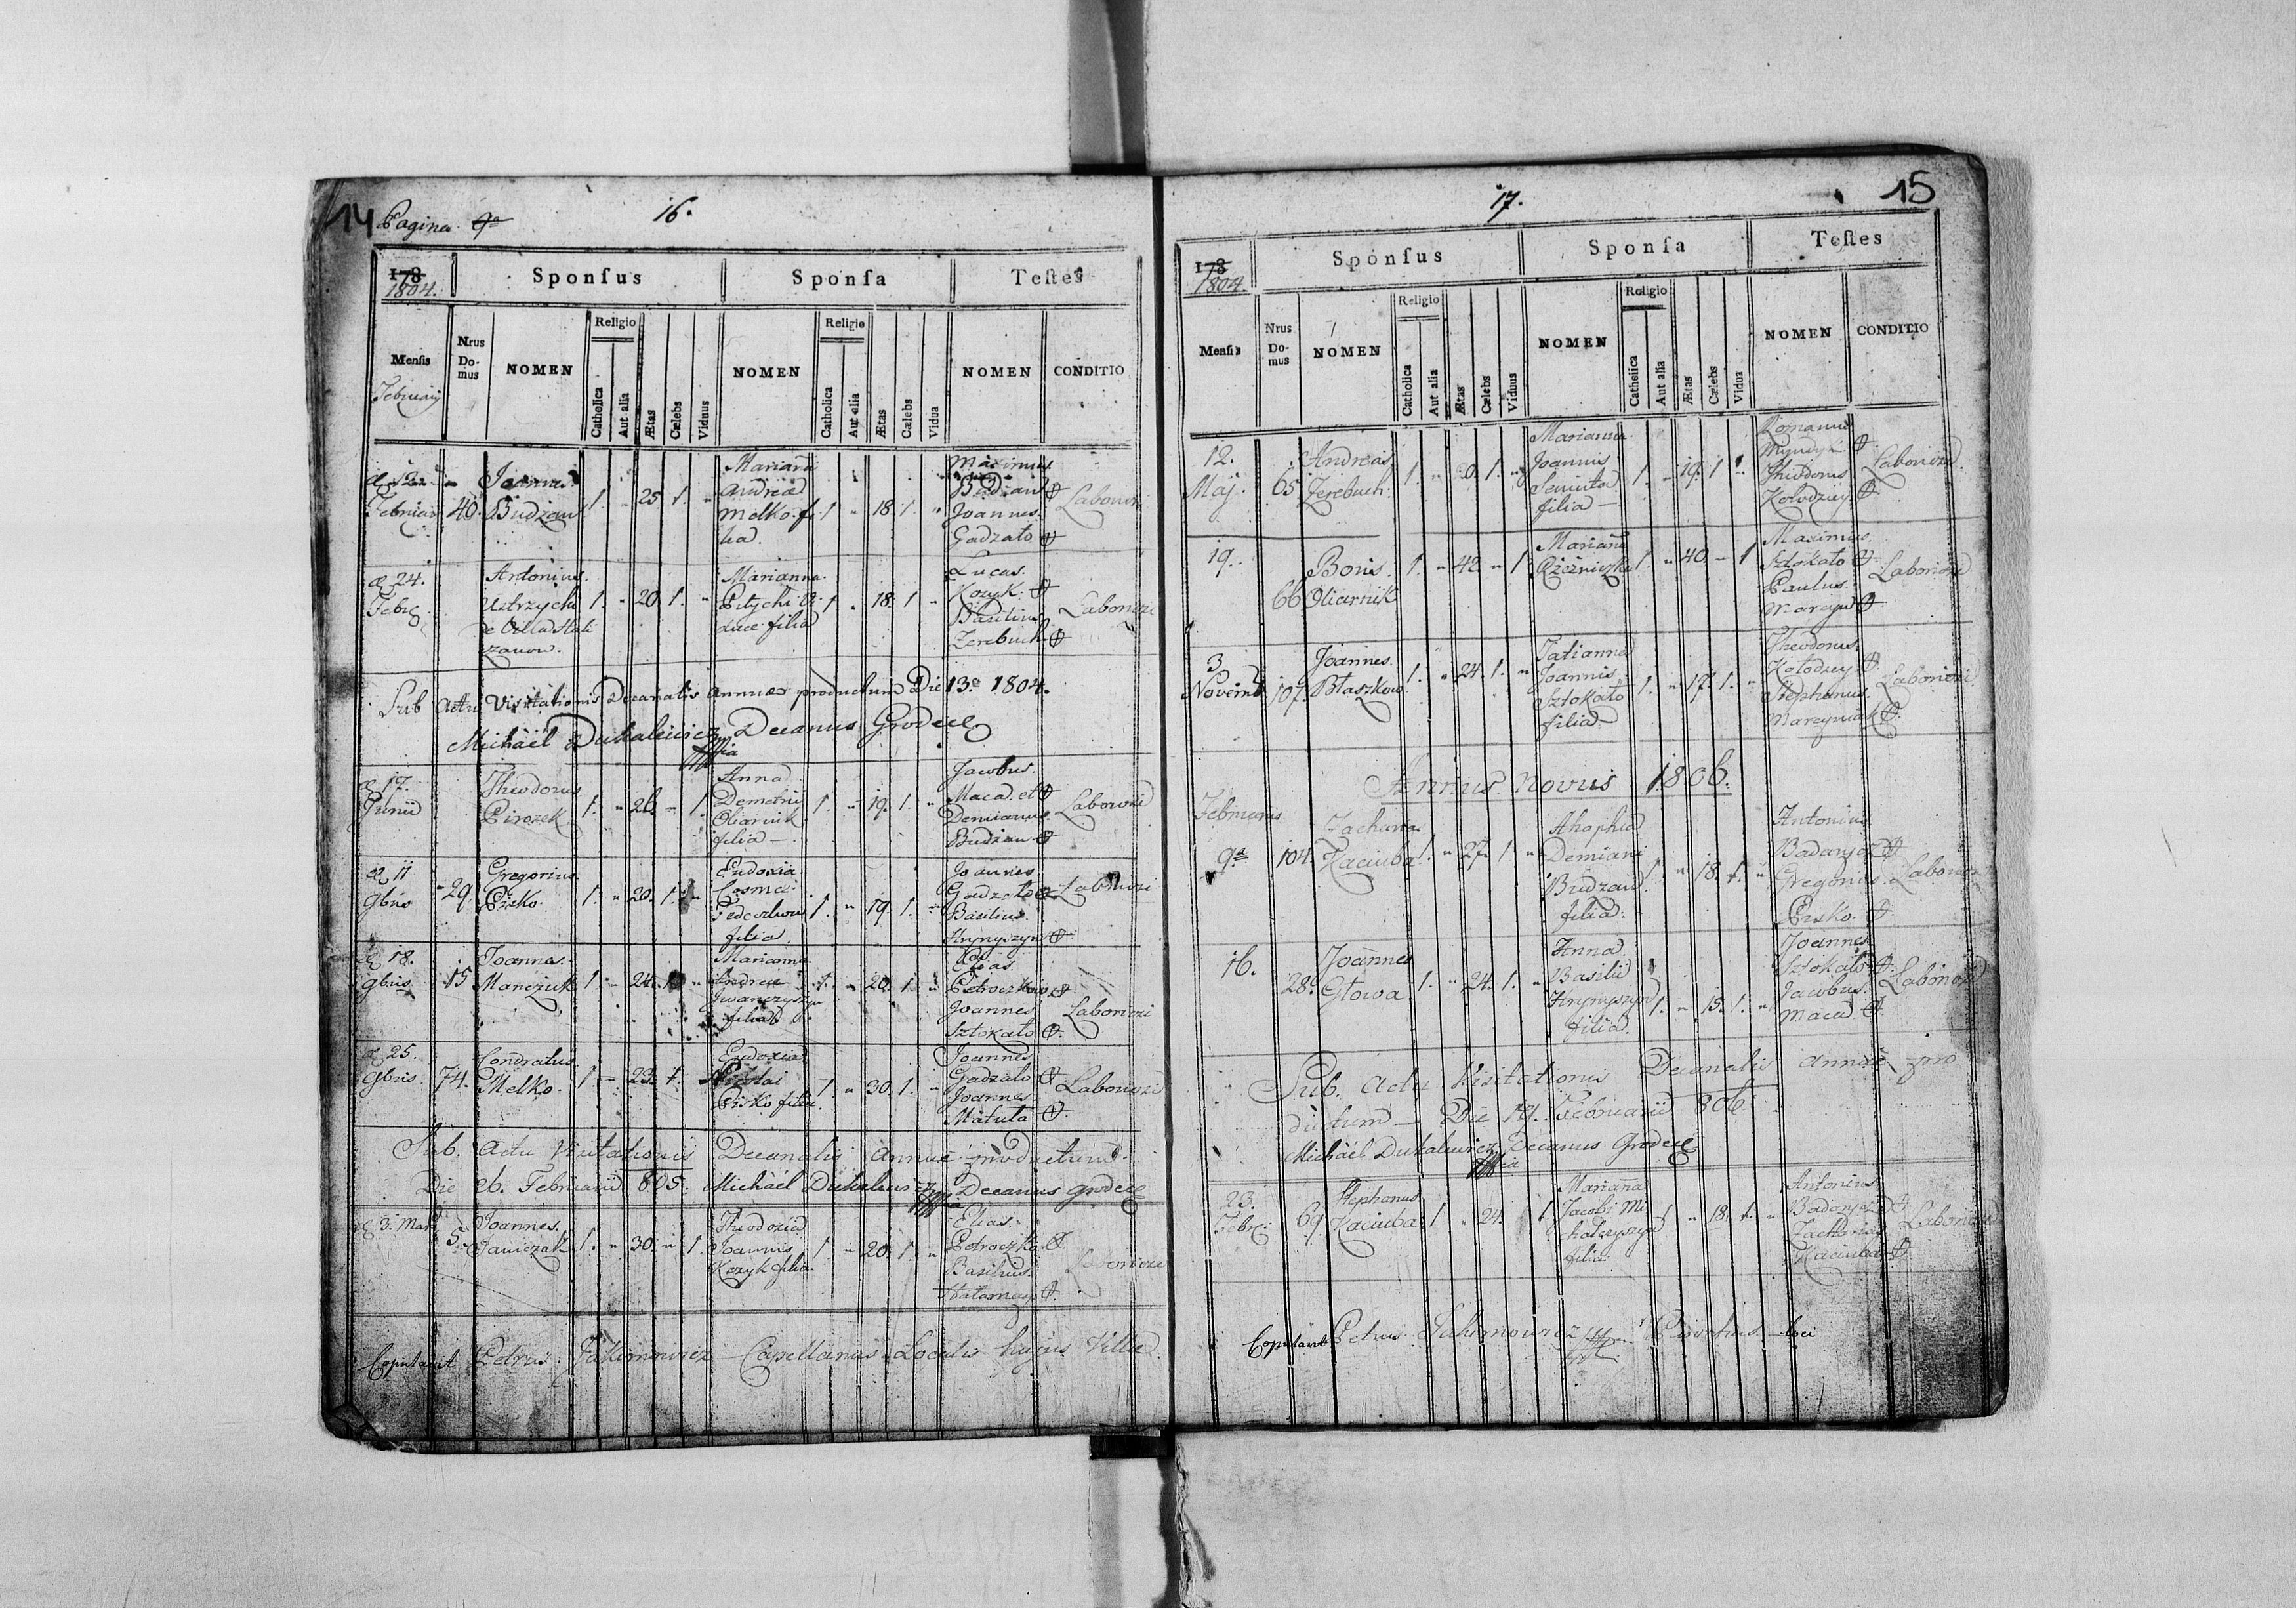 14 Pagina 9a
16.
178
1804.
Sponſus
Sponſa
Teſtes
Menſis
Februarij
Nrus Domus
NOMEN
Religio
Catholica
Aut alia
Ætas
Cælebs
Viduus
NOMEN
Religio
Catholica
Aut alia
Ætas
Cælebs
Vidua
NOMEN
CONDITIO
Februar 40. Budzan 1. " 25 1. "
Marianna
Andreæ
Melko fi 1 " 18. 1. "
lia.
Maximus
Budzan
Joannes
Gadzało
Laboriosi
24.
Febr
Antonius
Ustrzycki 1. " 20. 1. "
zanow.
Marianna
1 " 18. 1 "
Lucæ filia
Lucas
Kozyk
Basilius
Zerebuch
Laboriosi
Sub Actu Visitationis Decanalis Annuæ productum Die 13a 1804.
Michäel Dukalewicz Decanus Grodec
17.
Junii
Theodorus
Pirozek 1. " 26. " 1.
Anna
Demetrii
Oliarnik 1. " 19. 1. "
filia
Jacobus
Macad. et
Demianus
Budzan
Laboriosi
11
9bris 29.
Gregorius
Pisko. 1. " 20. 1.
Eudoxia
Cosmæ
1. " 19. 1. "
filia
Joannes
Gadzało
Basilius
Hrynyszyn
Laboriosi
18.
9bris 15
Joannes
Manczuk 1 " 24.
Marianna
Andreæ
Iwanczyszyn " 20. 1. "
filia
Elias
Petroczko
Joannes
Sztokało
Laboriosi
25.
9bris. 74.
Condratus
Melko. 1 " 23. 1.
Eudoxia
Nicolai
Pisko filia. 1 " 30. 1. "
Joannes
Gadzało
Joannes
Matuła
Laboriosi
Sub. Actu Visitationis Decanalis Annuæ productum
Die 26. Februarii 805. Michäel Dukalewicz Decanus Grodec
3. Mart
5.
Joannes.
Janiczak 1. " 30. " 1.
Theodozia
Joannis
Kozyk filia. 1. " 20. 1. "
Elias
Petroczko
Basilius
Hałamay
Laboriosi
Copulavit Petrus Jakimowicz Capellanus Localis hujus Villæ
17.
15
178
1804.
Sponſus
Sponſa
Teſtes
Menſis
Nrus Domus
NOMEN
Religio
Catholica
Aut alia
Ætas
Cælebs
Viduus
NOMEN
Religio
Catholica
Aut alia
Ætas
Cælebs
Vidua
NOMEN
CONDITIO
12.
Maj. 65
Andreas
Zerebuch. 1. " 1. "
Marianna
Joannis
1. " 19. 1 "
filia
Romanus
Theodorus
Kołodziey
Laboriosi
19.
66
Boris.
Oliarnik 1. " 42 " 1
Marianna
1. " 40. " 1
Maximus
Sztokało
Paulus
Laboriosi
3
Novemb. 107.
Joannes.
Błaszkow 1. " 24. 1. "
Tatianna
Joannis
Sztokało
filia 1. " 17. 1. "
Theodorus
Kołodzey
Stephanus
Marcyniak
Laboriosi
Annus novus 1806.
Februarii
9a 104.
Zacharias
Kaciuba 1. " 27. 1. "
Demiani
Budzan
filia: 1 " 18. 1. "
Antonius
Gregorius
Pisko.
Laboriosi
16.
28.
Joannes
Głowa 1. " 24. 1. "
Anna
Basilii
Hrynyszyn
filia. 1. " 15. 1. "
Joannes
Sztokało
Jacobus
Macad.
Laboriosi
Sub. Actu Visitationis Decanalis Annuæ pro
ductum Die 19. Februarii 806
Michäel Dukalewicz Decanus Grodec
23.
Febr: 69.
Stephanus
Kaciuba. 1. " 24. 1
Marianna
Jacobi Mi
chalczyszyn
filia. 1 " 18. 1. "
Antonius
Zacharias
Kaciuba
Laboriosi
Copulavit Petrus Jakimowicz Parochus Loci